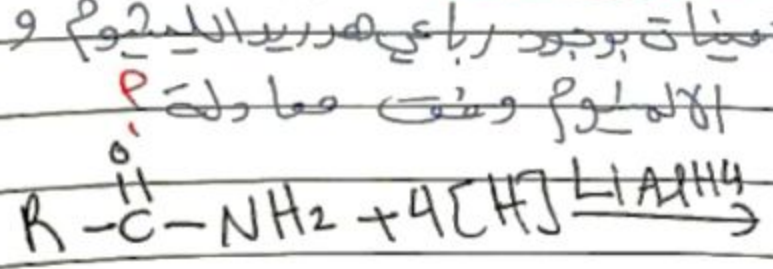 مينات بوجود رباعي هدريد الليثيوم و
الالمنيوم وفق معادلة ؟
O
||
R-C-NH2 +4[H] LiAlH4 →